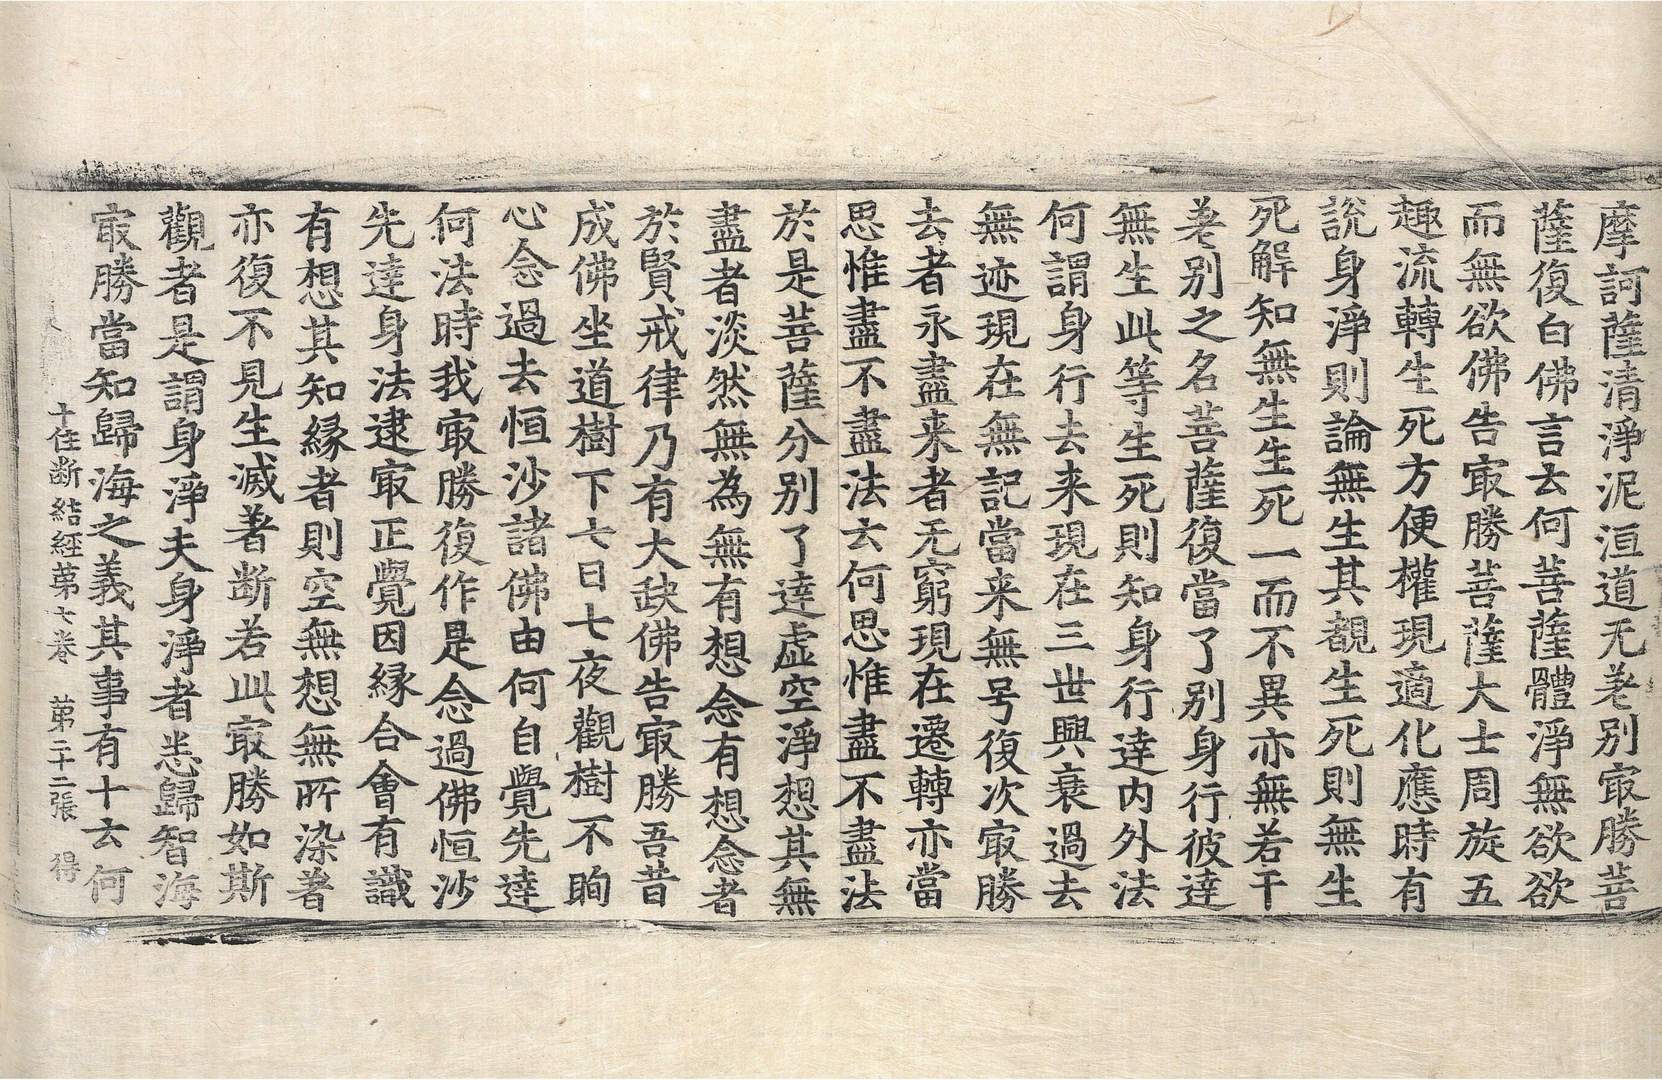 摩訶薩清淨泥洹道无差别㝡勝菩
薩復白佛言云何菩薩體淨無欲欲
而無欲佛告㝡勝菩薩大士周旋五
趣流轉生死方便權現適化應時有
說身淨則論無生其覩生死則無生
死解知無生生死一而不異亦無若干
差别之名菩薩復當了别身行彼達
無生此等生死則知身行達内外法
何謂身行去来現在三世興衰過去
無迹現在無記當来無号復次㝡勝
去者永盡来者无窮現在遷轉亦當
思惟盡不盡法云何思惟盡不盡法
於是菩薩分别了達虚空淨想其無
盡者淡然無為無有想念有想念者
於賢戒律乃有大缺佛告㝡勝吾昔
成佛坐道樹下七日七夜觀樹不眴
心念過去恒沙諸佛由何自覺先達
何法時我㝡勝復作是念過佛恒沙
先達身法逮㝡正覺因縁合會有識
有想其知縁者則空無想無所染著
亦復不見生滅著断若此㝡勝如斯
觀者是謂身淨夫身淨者悉歸智海
㝡勝當知歸海之義其事有十云何
十住断結經苐七卷 苐二十二張 得